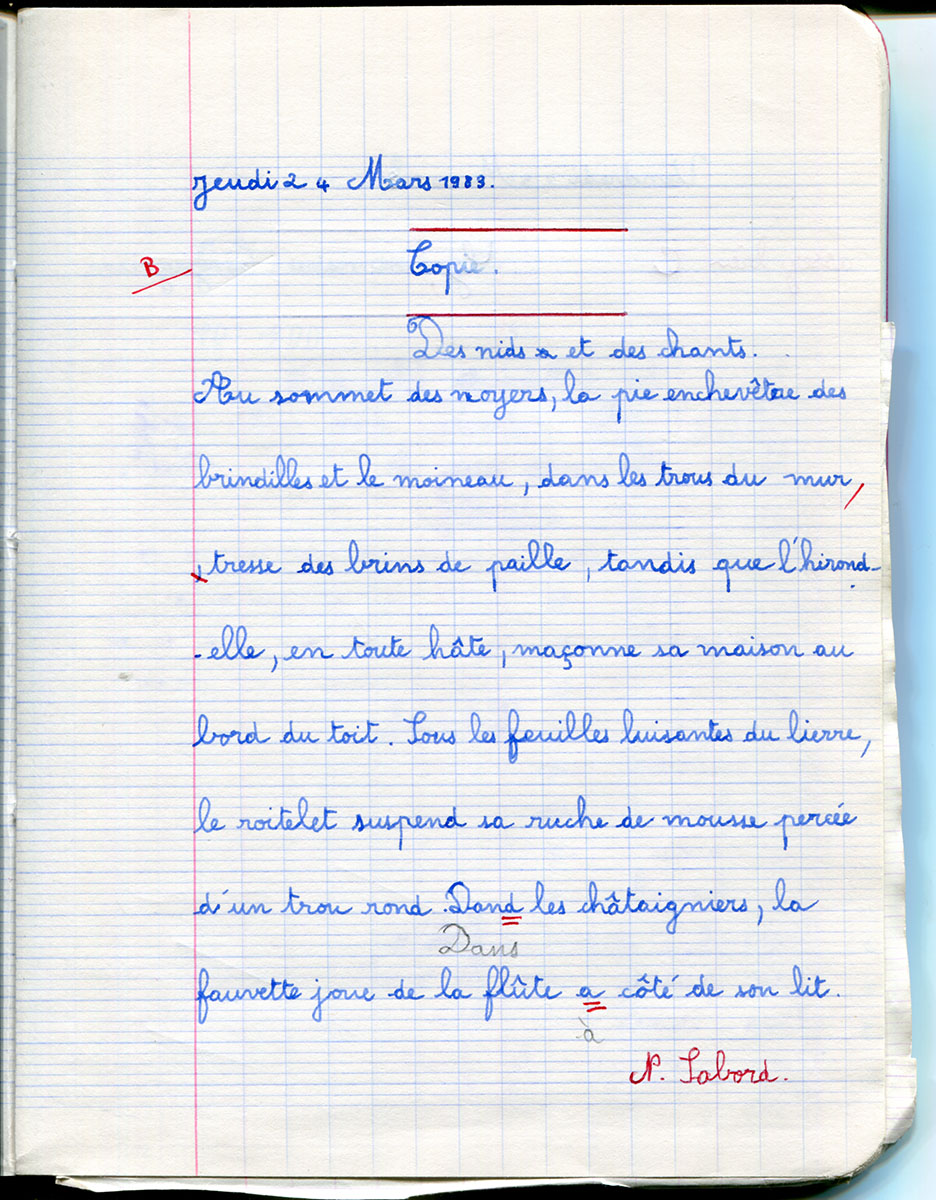 jeudi 24 Mars 1983.
B
Copie.
Des nids et des chants.
Au sommet des noyers, la pie enchevêtre des
brindilles et le moineau, dans les trous du mur,
, tresse des brins de paille, tandis que l'hirond-
-elle, en toute hâte, maçonne sa maison au
bord du toit. Sous les feuilles luisantes du lierre,
le roitelet suspend sa ruche de mousse percée
d'un trou rond. Dand les châtaigniers, la
Dans
fauvette joue de la flûte a côté de son lit.
à
P. Sabord.